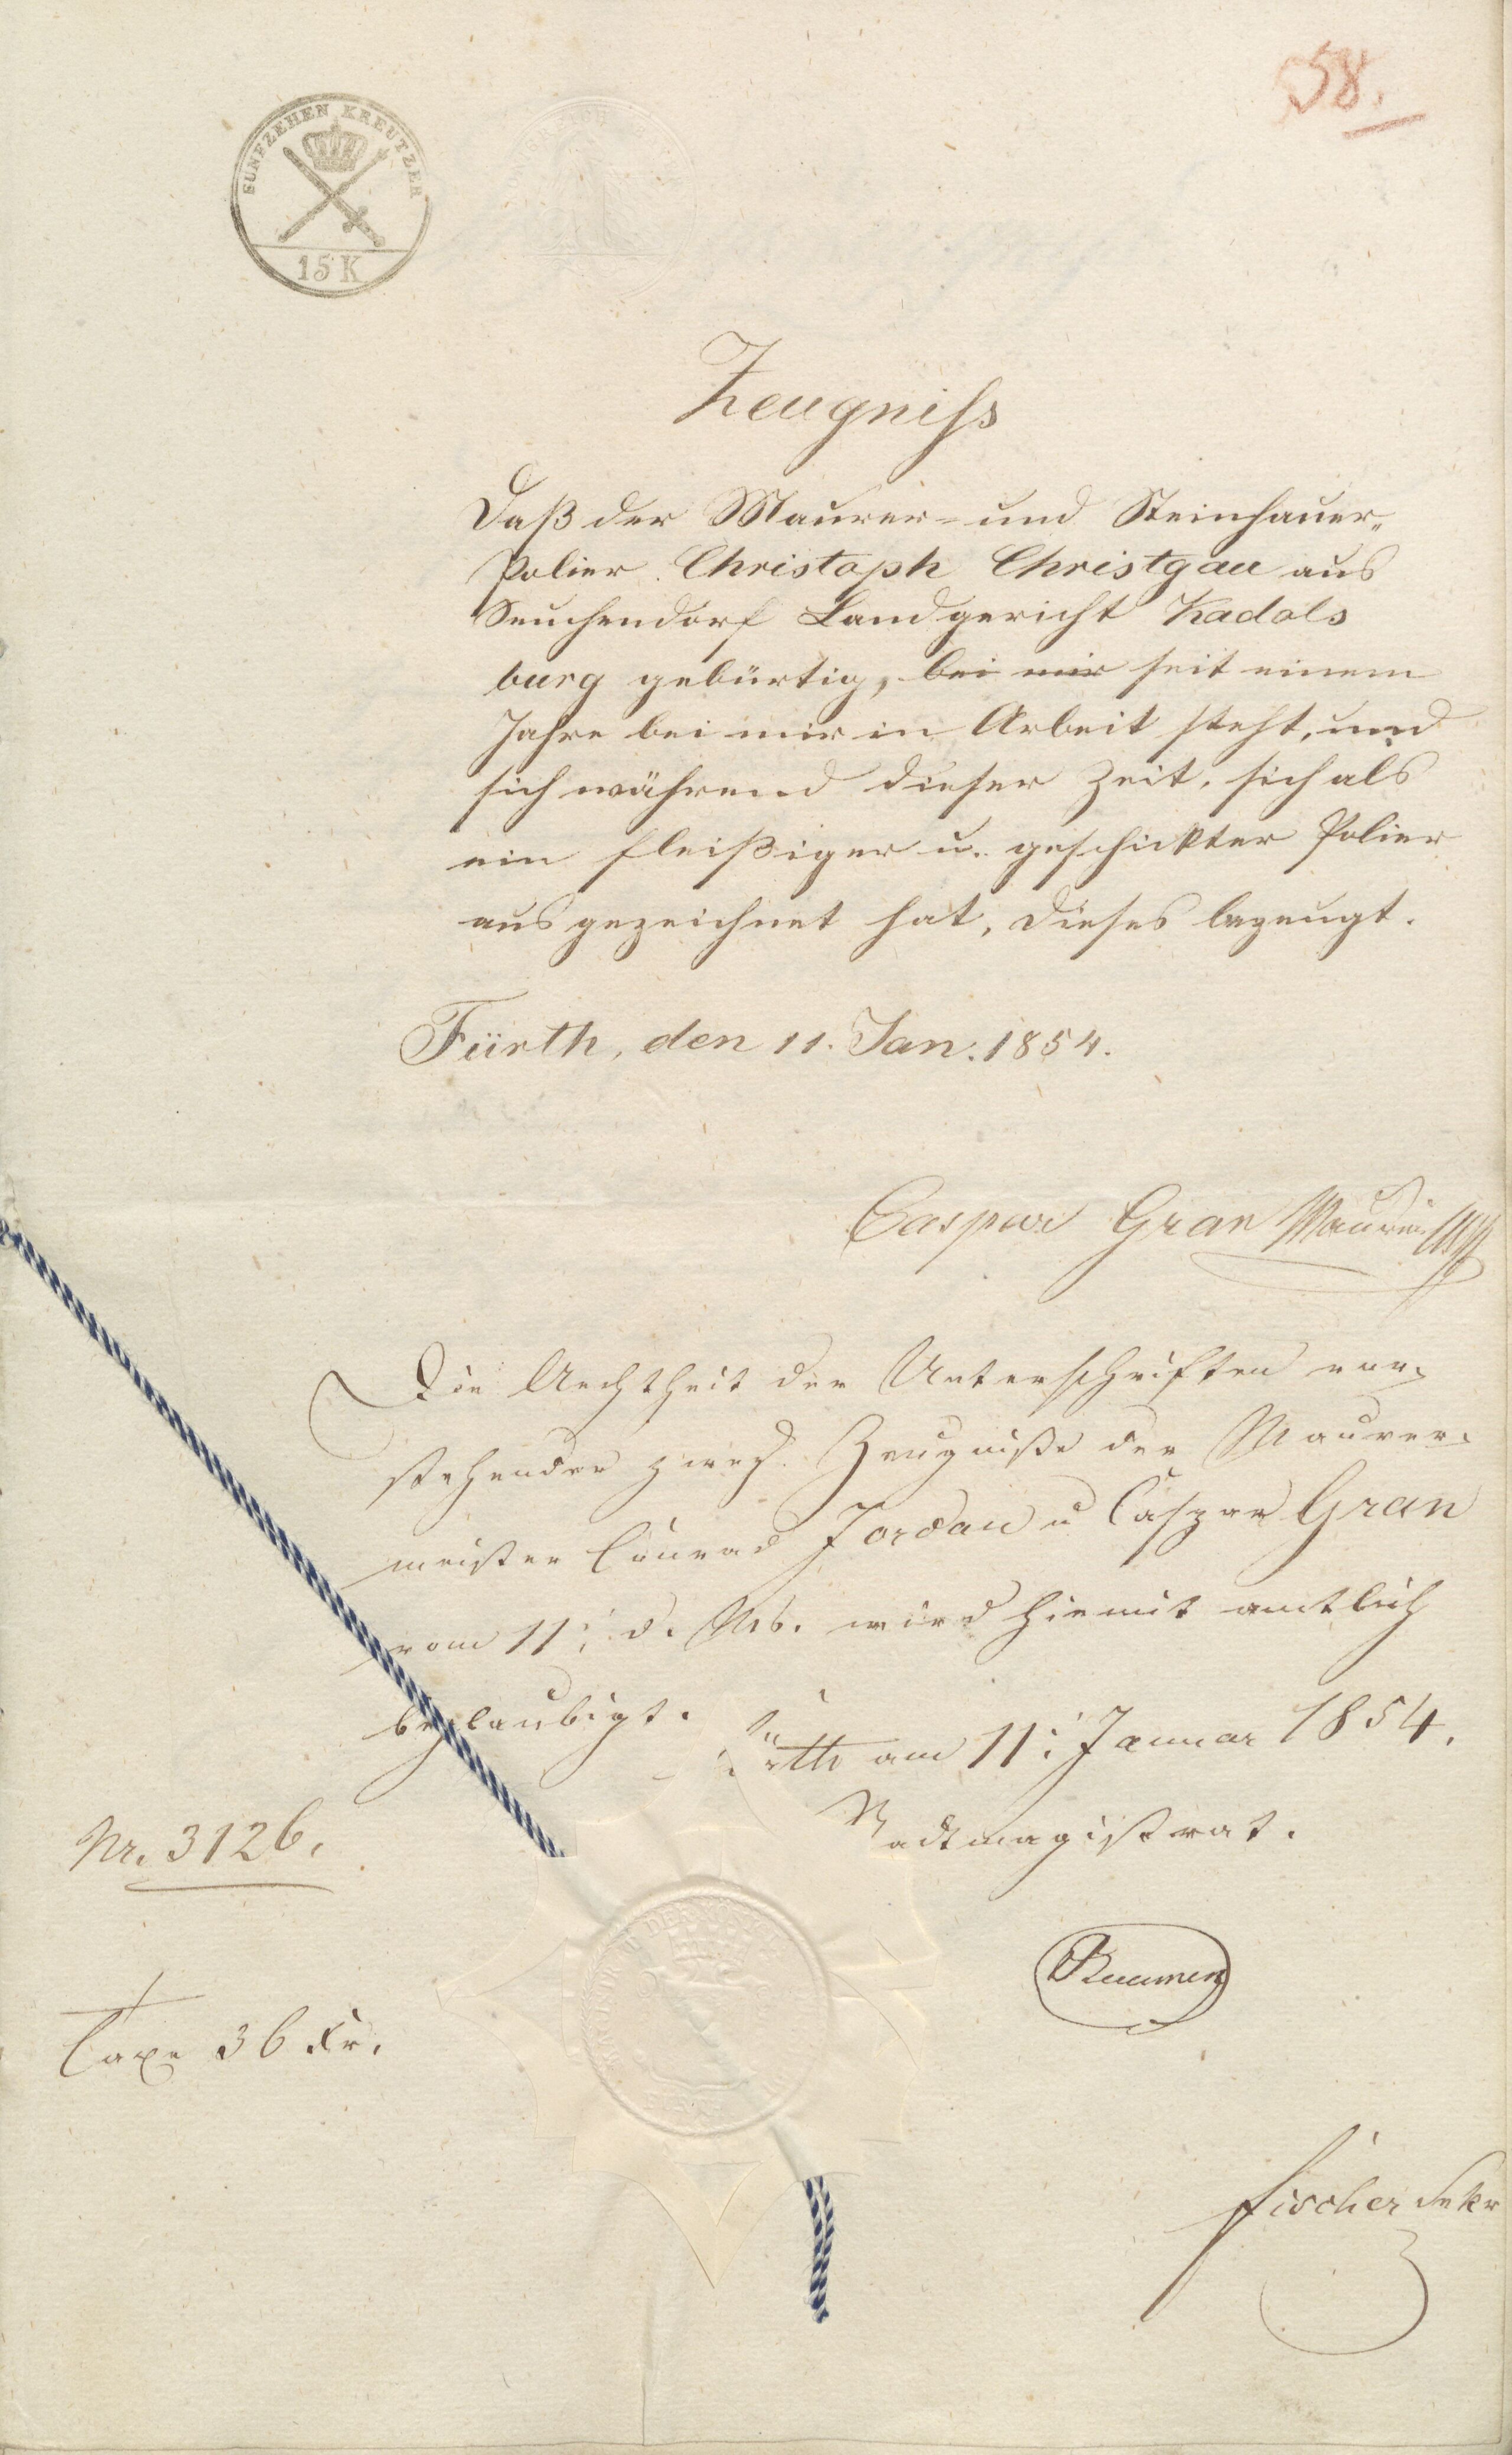 58.
FUNFZEHEN KREUTZER
15 K
Zeugniss
Daß der Maurer- und Steinhauer-
Polier Christoph Christgau aus
Seuchendorf Landgericht Kadols
burg gebürtig, bei mir seit einem
Jahre bei mir in Arbeit steht, und
sich während dieser Zeit, sich als
ein fleißiger u. geschickter Polier
ausgezeichnet hat, dieses bezeugt.
Fürth, den 11. Jan. 1854.
Caspar Gran Maurer
Die Aechtheit der Unterschriften vor-
stehender zwey Zeugniße der Maurer-
meister Conrad Jordan u Caspar Gran
vom 11: d. Mts. wird hiemit amtlich
beglaubigt.
Fürth am 11: Januar 1854.
Stadtmagistrat.
Nr. 3126.
Taxe 36 Kr.
Fischer Sekr